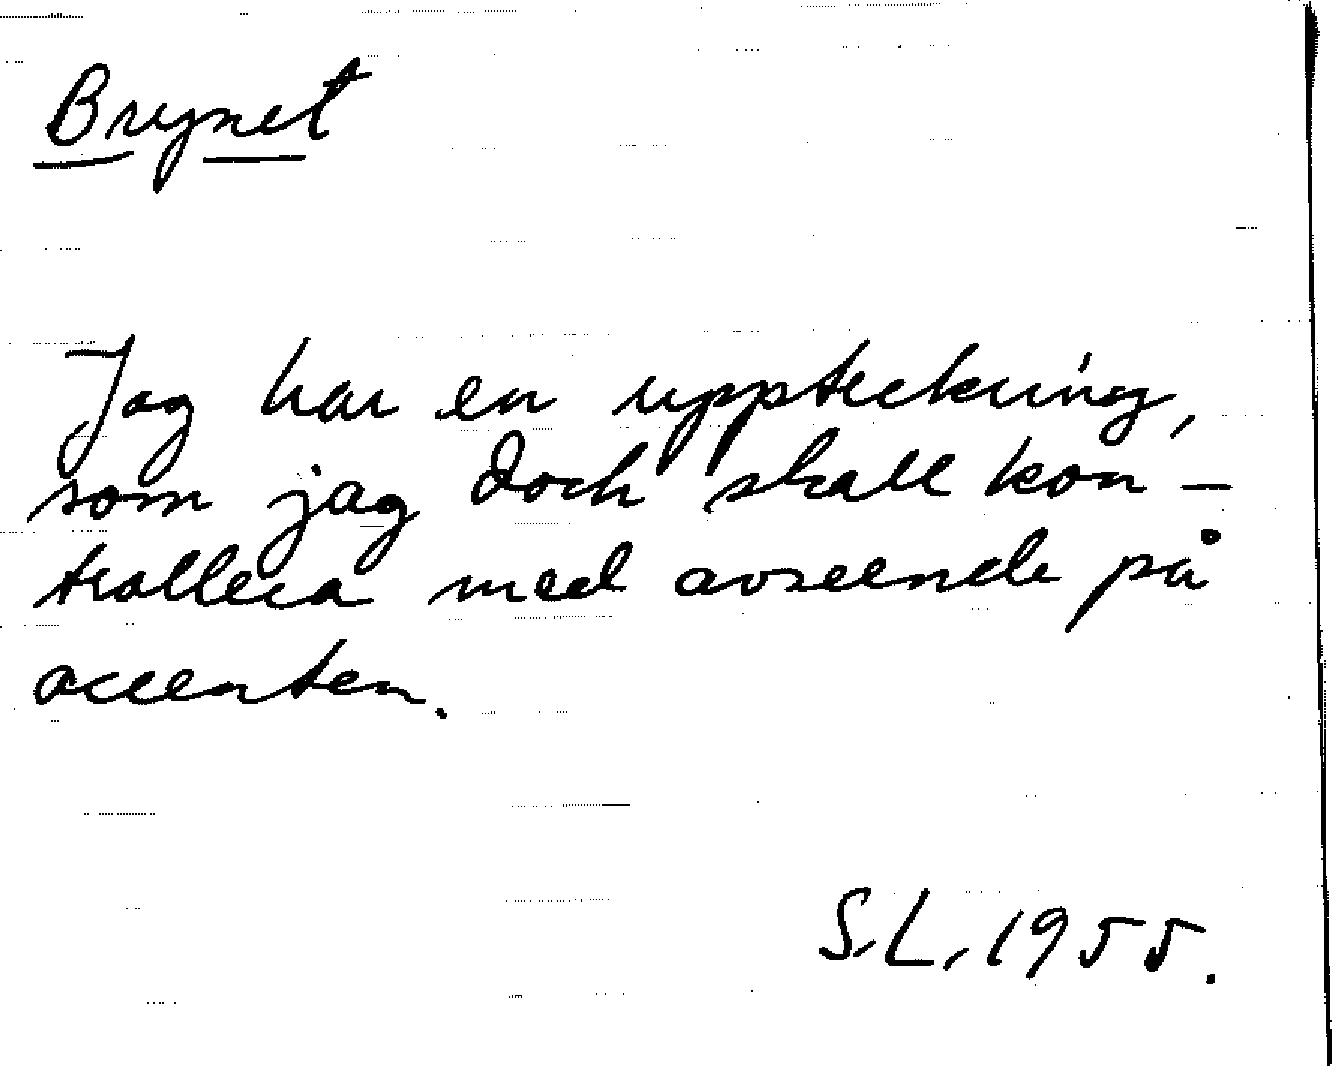 Brynet
Jag har en uppteckning,
som jag doch skall kon-
trollera med avseende på
accenten.
S.L. 1955.